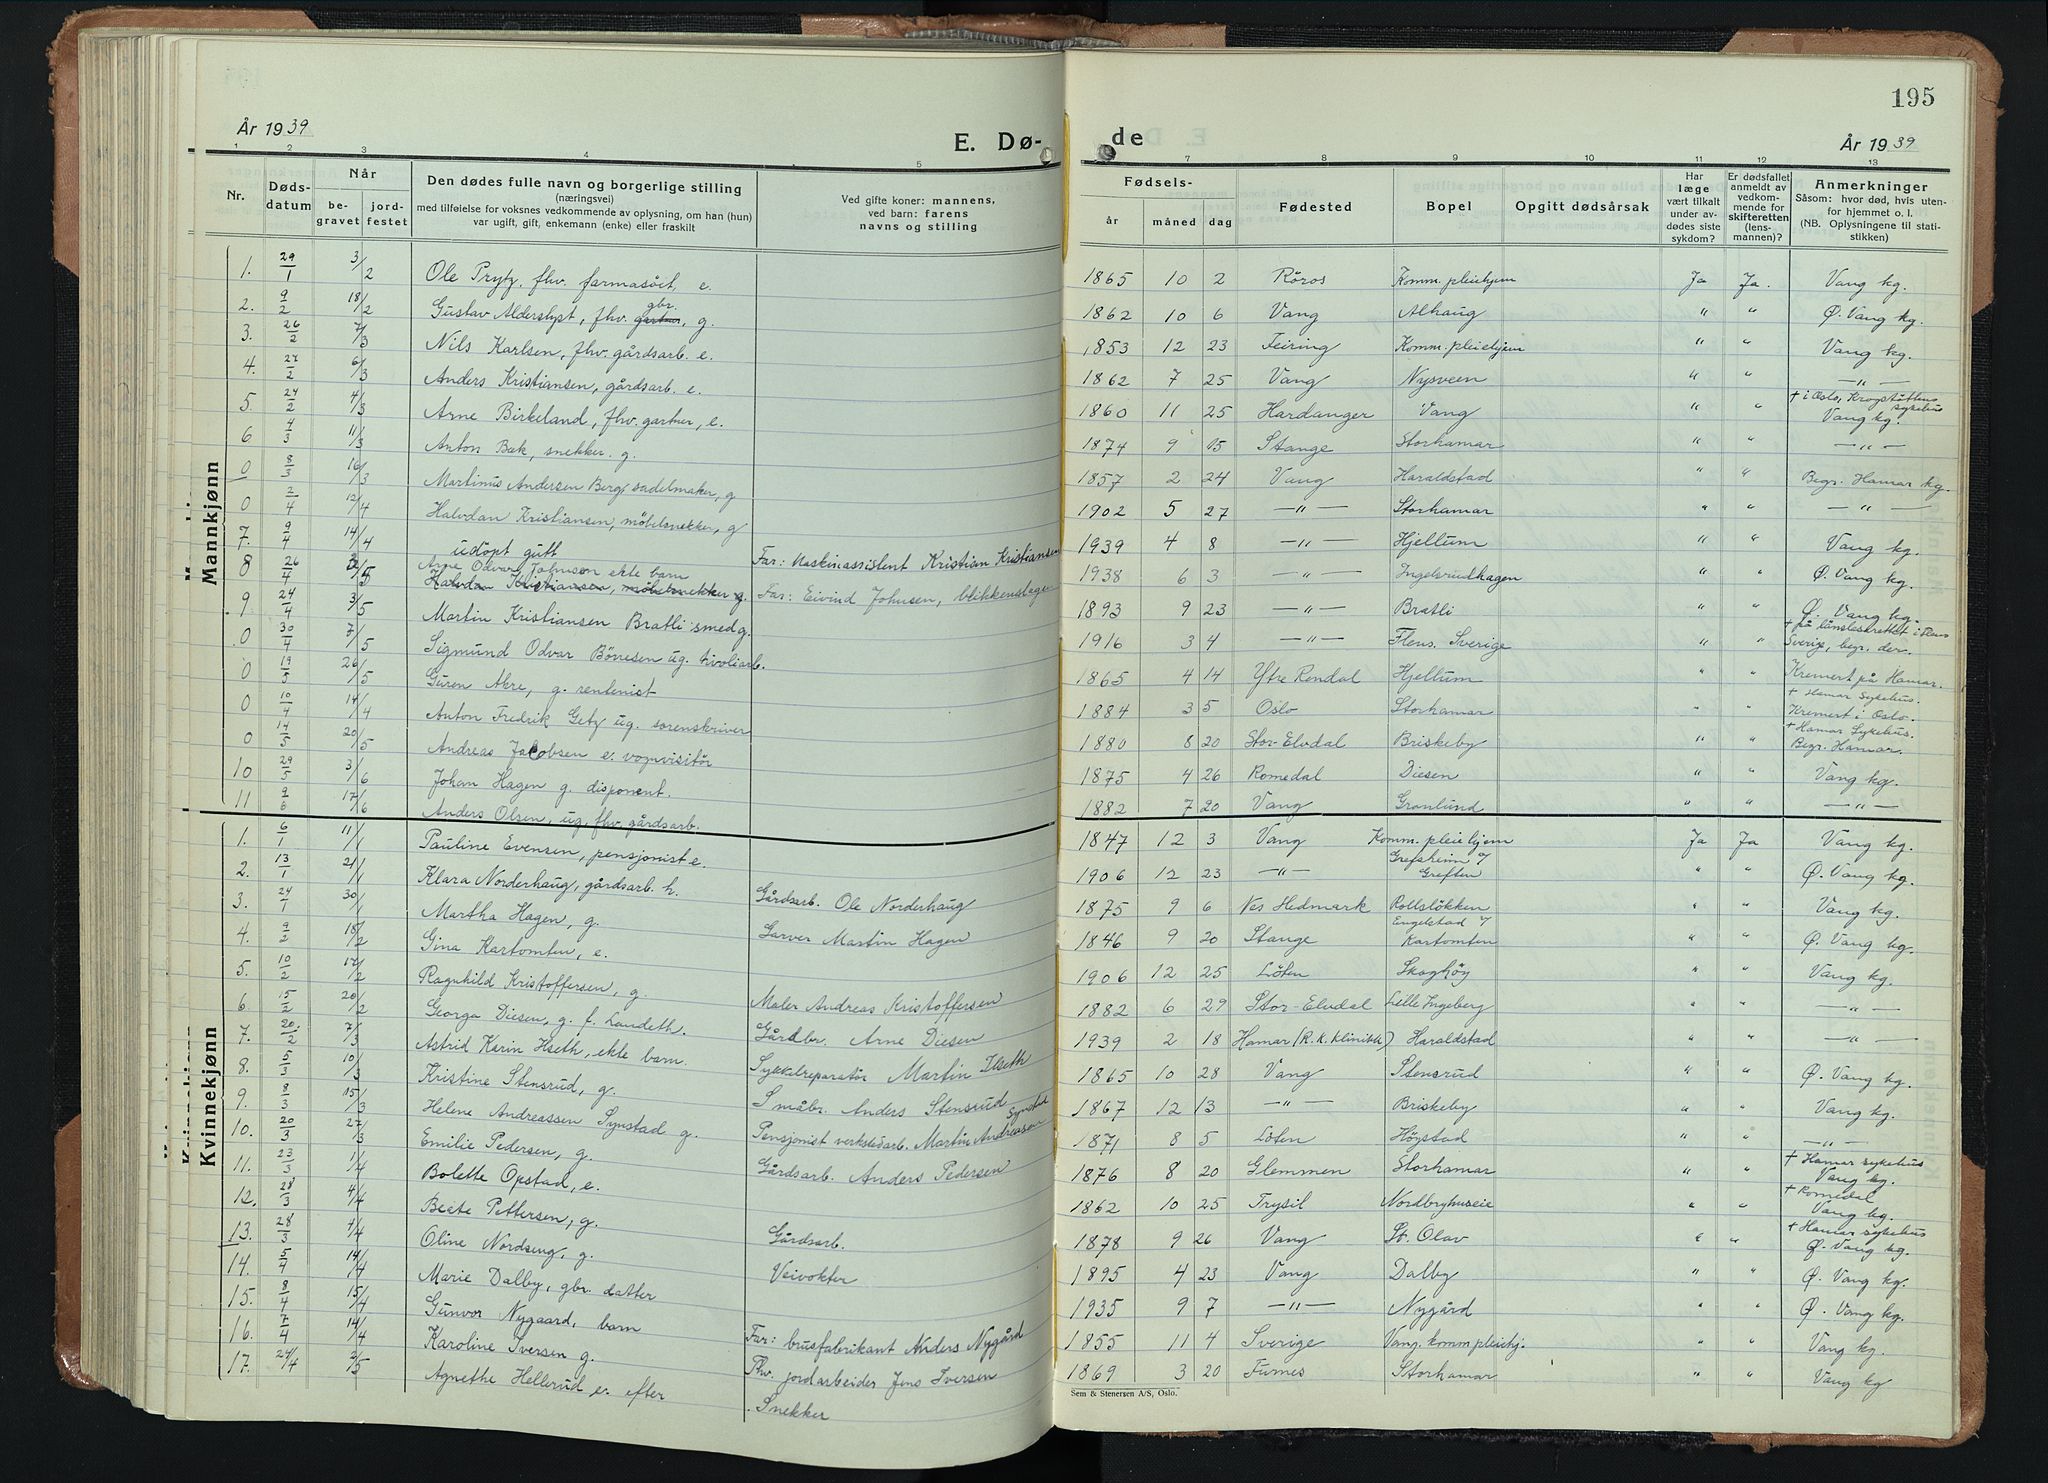 195
År 1939
E. Dø-
de
År 1939
1 2 3 4 5 7 8 9 10 11 12 13
Nr.
Døds-
datum
Når
be-
gravet
jord-
festet
Den dødes fulle navn og borgerlige stilling
(næringsvei)
med tilføielse for voksnes vedkommende av oplysning, om han (hun)
var ugift, gift, enkemann (enke) eller fraskilt
Ved gifte koner: mannens,
ved barn: farens
navns og stilling
Fødsels-
år måned dag
Fødested
Bopel
Opgitt dødsårsak
Har
læge
vært tilkalt
under av-
dødes siste
sykdom?
Er dødsfallet
anmeldt av
vedkom-
mende for
skifteretten
(lens-
mannen)?
Anmerkninger
Såsom: hvor død, hvis uten-
for hjemmet o. l.
(NB. Oplysningene til stati-
stikken)
Mannkjønn
1. 29/1 3/2 Ole Prytz, fhv. farmasøit, e. 1865 10 2 Röros Komm. pleiehjem Ja Ja. Vang kg.
2. 9/2 18/2 Gustav Alderslyst, fhv. gartner, gbr. g. 1862 10 6 Vang Alhaug " " Ø. Vang kg.
3. 26/2 7/3 Nils Karlsen, fhv. gårdsarb. e. 1853 12 23 Feiring Komm. pleiehjem " " Vang kg.
4. 27/2 6/3 Anders Kristiansen, gårdsarb. e. 1862 7 25 Vang Nysveen " " —"—
5. 24/2 4/3 Arne Birkeland, fhv. gartner, e. 1860 11 25 Hardanger Vang " " + i Oslo, Krogstøttens sykehus
Vang kg.
6 4/3 11/3 Anton Bæk, snekker. g. 1874 9 15 Stange Storhamar " " —"—
0 8/3 16/3 Martinus Andersen Berg, sadelmaker, g 1857 2 24 Vang Haraldstad " " Begr. Hamar kg.
0 2/4 12/4 Halvdan Kristiansen, möbelsnekker, g 1902 5 27 —"— Storhamar " " —"—
7. 9/4 14/4 udöpt gutt Far: Maskinassistent Kristian Kristiansen 1939 4 8 —"— Hjellum " " Vang kg.
8 26/4 3/5 Arne Odvar Johnsen ekte barn Far: Eivind Johnsen, blikkenslager 1938 6 3 —"— Ingelsrudhagen " " Ø. Vang kg.
Halvdan Kristiansen, møbelsnekker g.
9 24/4 3/5 Martin Kristiansen Bratli smed g. 1893 9 23 —"— Bratli " " Ø. Vang kg.
0 30/4 7/5 Sigmund Odvar Börresen ug. tivoliarb. 1916 3 4 —"— Flens. Sverige " " + på länslasarettet i Flens
Sverige, begr. der.
0 19/5 26/5 Guren Akre, g. rentenist 1865 4 14 Ytre Rendal Hjellum " " Kremert på Hamar.
0 10/4 14/4 Anton Fredrik Getz ug. sorenskriver 1884 3 5 Oslo Storhamar " " + Hamar Sykehus.
Kremert i Oslo.
0 14/5 20/5 Andreas Jacobsen e. vognvisitör 1880 8 20 Stor-Elvdal Briskeby " " + Hamar Sykehus.
Begr. Hamar.
10 29/5 3/6 Johan Hagen g. disponent. 1875 4 26 Romedal Diesen " " Vang kg.
11 9/6 17/6 Anders Olsen, ug. fhv. gårdsarb. 1882 7 20 Vang Granlund " " —"—
Kvinnekjønn
1. 6/1 11/1 Pauline Evensen, pensjonist e. 1847 12 3 Vang Komm. pleiehjem Ja Ja Vang kg.
2. 13/1 21/1 Klara Norderhaug, gårdsarb. h. Gårdsarb. Ole Norderhaug 1906 12 23 —"— Grefsheim o/ Greften " " Ø. Vang kg.
3. 24/1 30/1 Martha Hagen, g. Garver Martin Hagen 1875 9 6 Nes Hedmark Rollsløkken " " Vang kg.
4. 9/2 18/2 Gina Kartomten, e. 1846 9 20 Stange Engelstad o/ Kartomten " " Ø. Vang kg.
5. 10/2 17/2 Ragnhild Kristoffersen, g. Maler Andreas Kristoffersen 1906 12 25 Löten Skoghöy " " Vang kg.
6 15/2 20/2 Georga Diesen, g. f. Landeth. Gårdbr. Arne Diesen 1882 6 29 Stor-Elvdal Lille Ingeberg " " —"—
7. 20/2 7/3 Astrid Karin Ilseth, ekte barn. Sykkelreparatør Martin Ilseth 1939 2 18 Hamar (R.K. klinikk) Haraldstad " " —"—
8. 5/3 10/3 Kristine Stensrud, g. Småbr. Anders Stensrud 1865 10 28 Vang Stensrud " " Ø. Vang kg.
9. 8/3 15/3 Helene Andreassen Synstad g. Pensjonist verkstedarb. Martin Andreassen Synstad 1867 12 13 —"— Briskeby " " Vang kg.
10. 20/3 27/3 Emilie Pedersen, g. Gårdsarb. Anders Pedersen 1871 8 5 Löten Högstad " " —"—
11. 23/3 1/4 Bolette Opstad, e. 1876 8 20 Glemmen Storhamar " " + Hamar sykehus
Vang kg.
12. 28/3 4/4 Beate Pettersen, g. Gårdsarb. 1862 10 25 Trysil Nordbyhuseie " " + Romedal
Vang kg.
13. 28/3 4/4 Oline Nordseng, g. Veivokter 1878 9 26 Vang St. Olav " " + Hamar sykehus
Ø. Vang kg.
14. 5/4 14/4 Marie Dalby, gbr. datter 1895 4 23 Vang Dalby " " Ø. Vang kg.
15. 8/4 15/4 Gunvor Nygaard, barn Far: brusfabrikant Anders Nygård 1935 9 7 —"— Nygård " " Ø. Vang kg.
16. 7/4 14/4 Karoline Iversen g. Fhv. jordarbeider Jens Iversen 1855 11 4 Sverige Vang. komm pleiehj. " " Vang kg.
17. 24/4 2/5 Agnethe Hellerud e. efter Snekker 1869 3 20 Furnes Storhamar " " Vang kg
Sem & Stenersen A/S, Oslo.